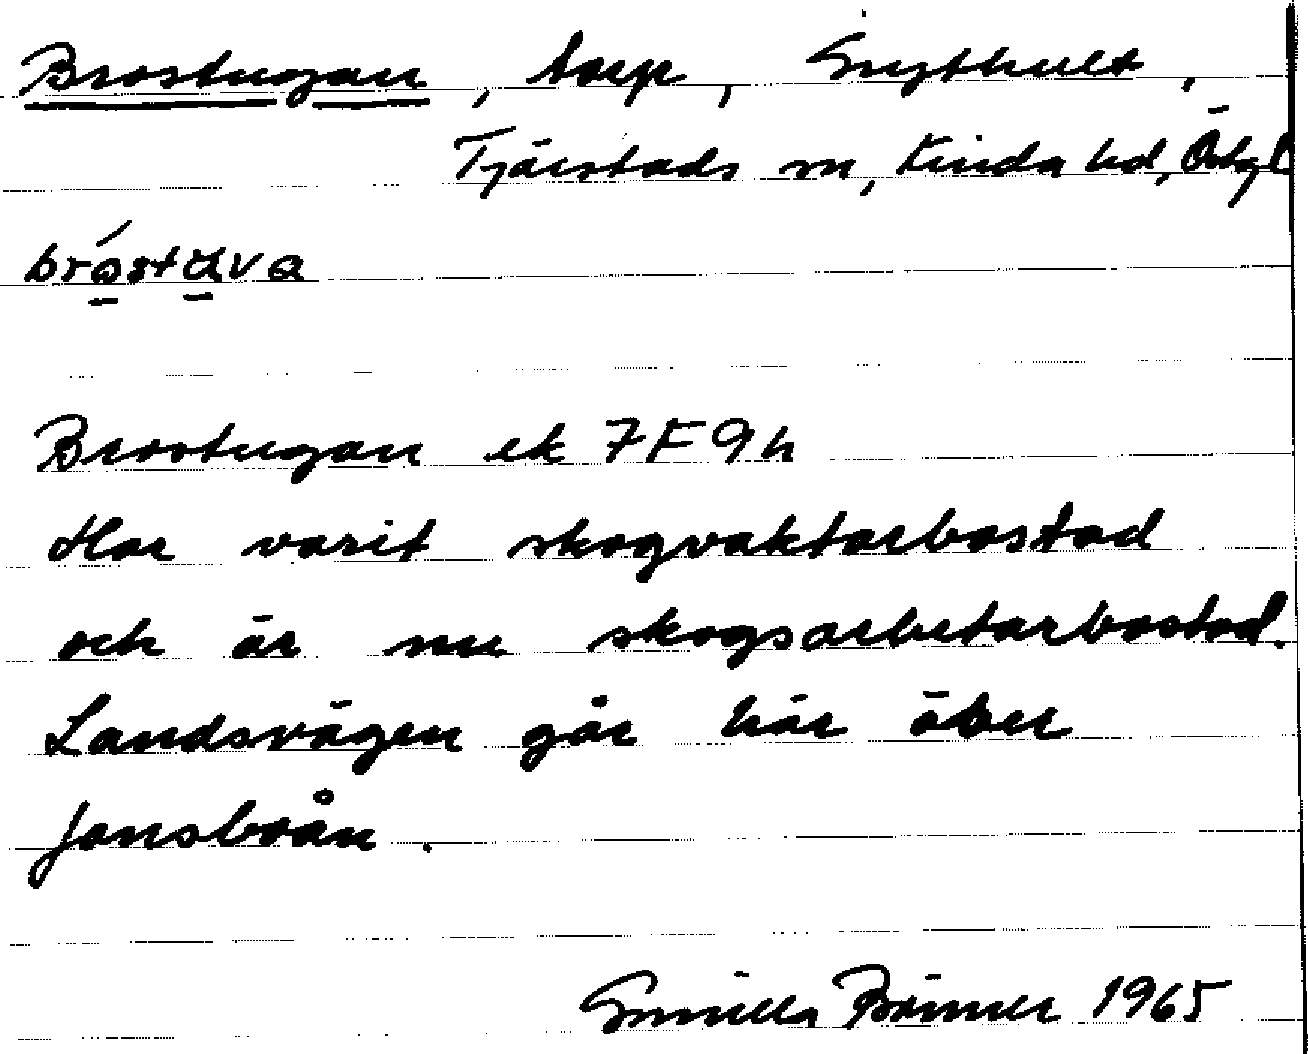 Brostugan, torp, Grythult,
Tjärstads sn, Kinda hd, Östgl
bróstȧva
Brostugan ek 7F9h
Har varit skogvaktarbostad
och är nu skogsarbetarbostad.
Landsvägen går här över
Jonsboån.
Gunilla 1965